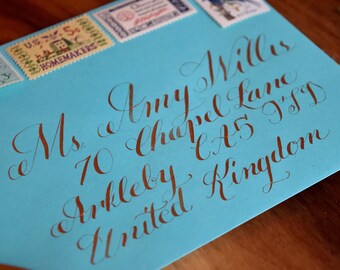 U.S. 5c
HOMEMAKERS
Ms. Amy Willis
70 Chapel Lane
Arkleby CA5
United Kingdom